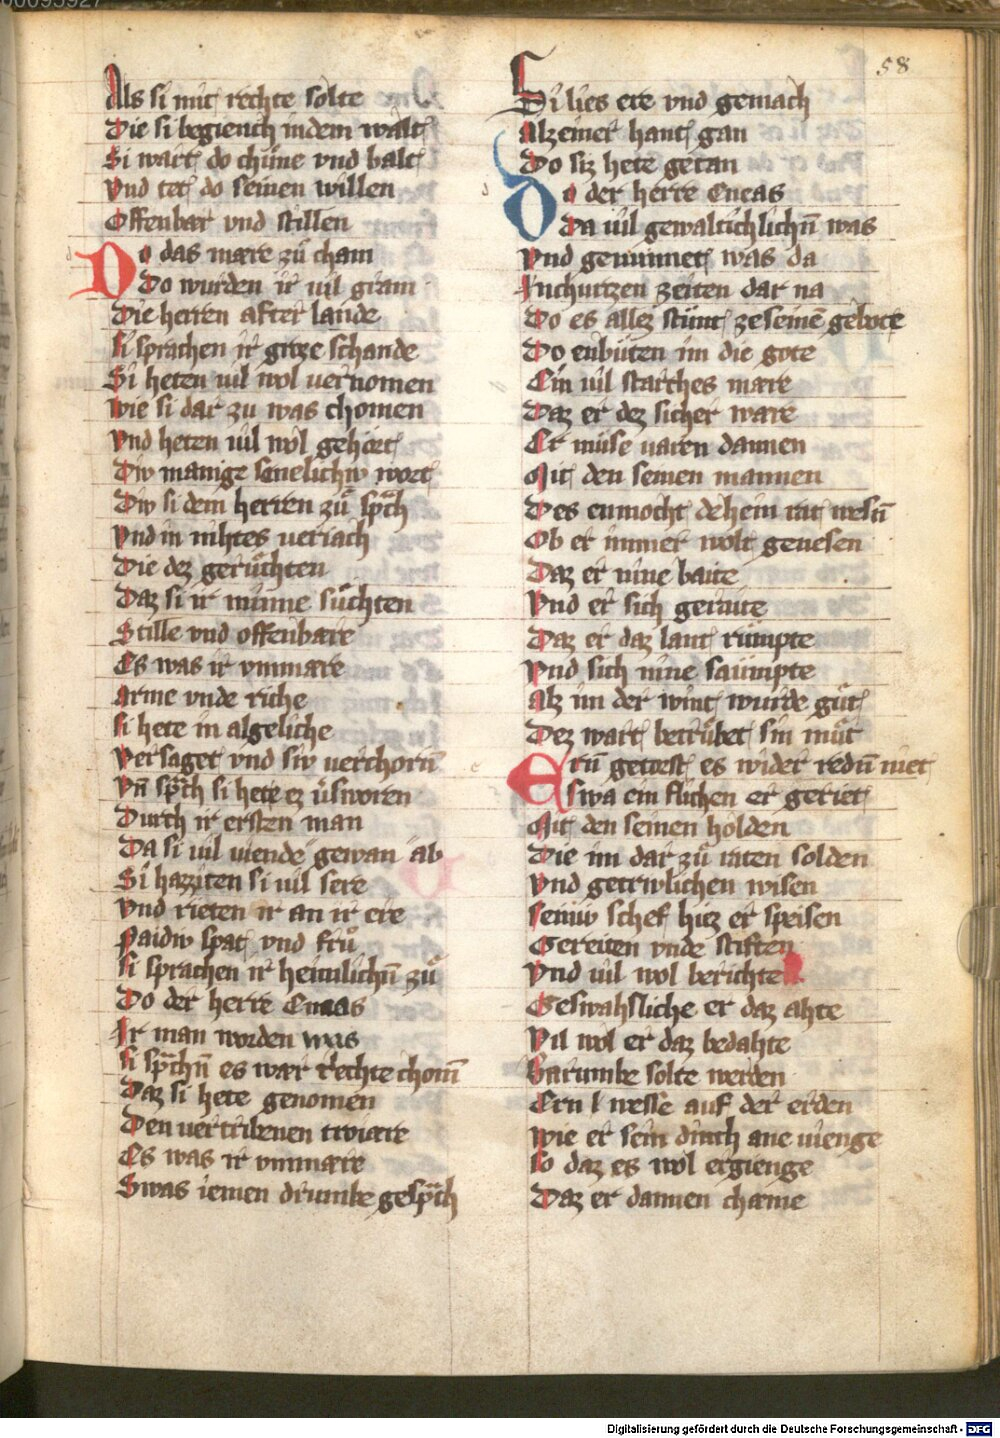 58
Als si mit rechte solte
Die si begiench in dem walt
Si wart do chune vnd balt
Vnd tet do seinen willen
Offenbar vnd stillen
Do das mære zů cham
Do wurden ir uil gram
Die herren after lande
Si sprachen ir groze schande
Si heten uil wol uernomen
Wie si dar zu was chomen
Vnd heten uil wol gehort
Div manige senelichiv wort
Div si dem herren zů sprach
Vnd in nihtes ueriach
Die dez gerůchten
Daz si ir minne sůchten
Stille vnd offenbære
Es was ir vnmære
Arme vnde riche
Si hete in algeliche
Versaget vnd siv uerchorn̄
Vn̄ sprach si hete ez uersworen
Durch ir ersten man
Da si uil uiende gewan ab
Si hazziten si uil sere
Vnd rieten ir an ir ere
Paidiv spat vnd frů
Si sprachen ir heimlichn̄ zů
Do der herre Eneas
Ir man worden was
Si sprachn̄ es wær rechte chom̄
Daz si hete genomen
Den uertribenen troiære
Es was ir vnmære
Swas iemen drumbe gesprach
Si lies ere vnd gemach
Alzeiner hant gan
Do siz hete getan
Do der herre Eneas
Da uil gewaltichlichn̄ was
Vnd geminnet was da
In churtzen zeiten dar na
Do es allez stunt ze seinē gebote
Do enbuten im die gote
Ein uil starches mære
Daz er dez sicher wære
Er muse uaren dannen
Mit den seinen mannen
Des enmocht dehein rat wesn̄
Ob er immer wolt genesen
Daz er nine baite
Vnd er sich geraite
Daz er daz lant rumpte
Vnd sich nine saumpte
Alz im der wint wurde gůt
Dez wart betrůbet sin můt
Ern getorst es wider redn̄ niet
Swa ein fluchen er geriet
Mit den seinen holden
Die im dar zů raten solden
Vnd getriwlichen wisen
Seiniv schef hiez er speisen
Gereiten vnde stiften
Vnd uil wol berichten
Geswahsliche er daz ahte
Vil wol er daz bedahte
Warumbe solte werden
Ern l wesse auf der erden
Wie er sein dinch ane uienge
So daz es wol ergienge
Daz er dannen chæme
Digitalisierung gefördert durch die Deutsche Forschungsgemeinschaft - DFG